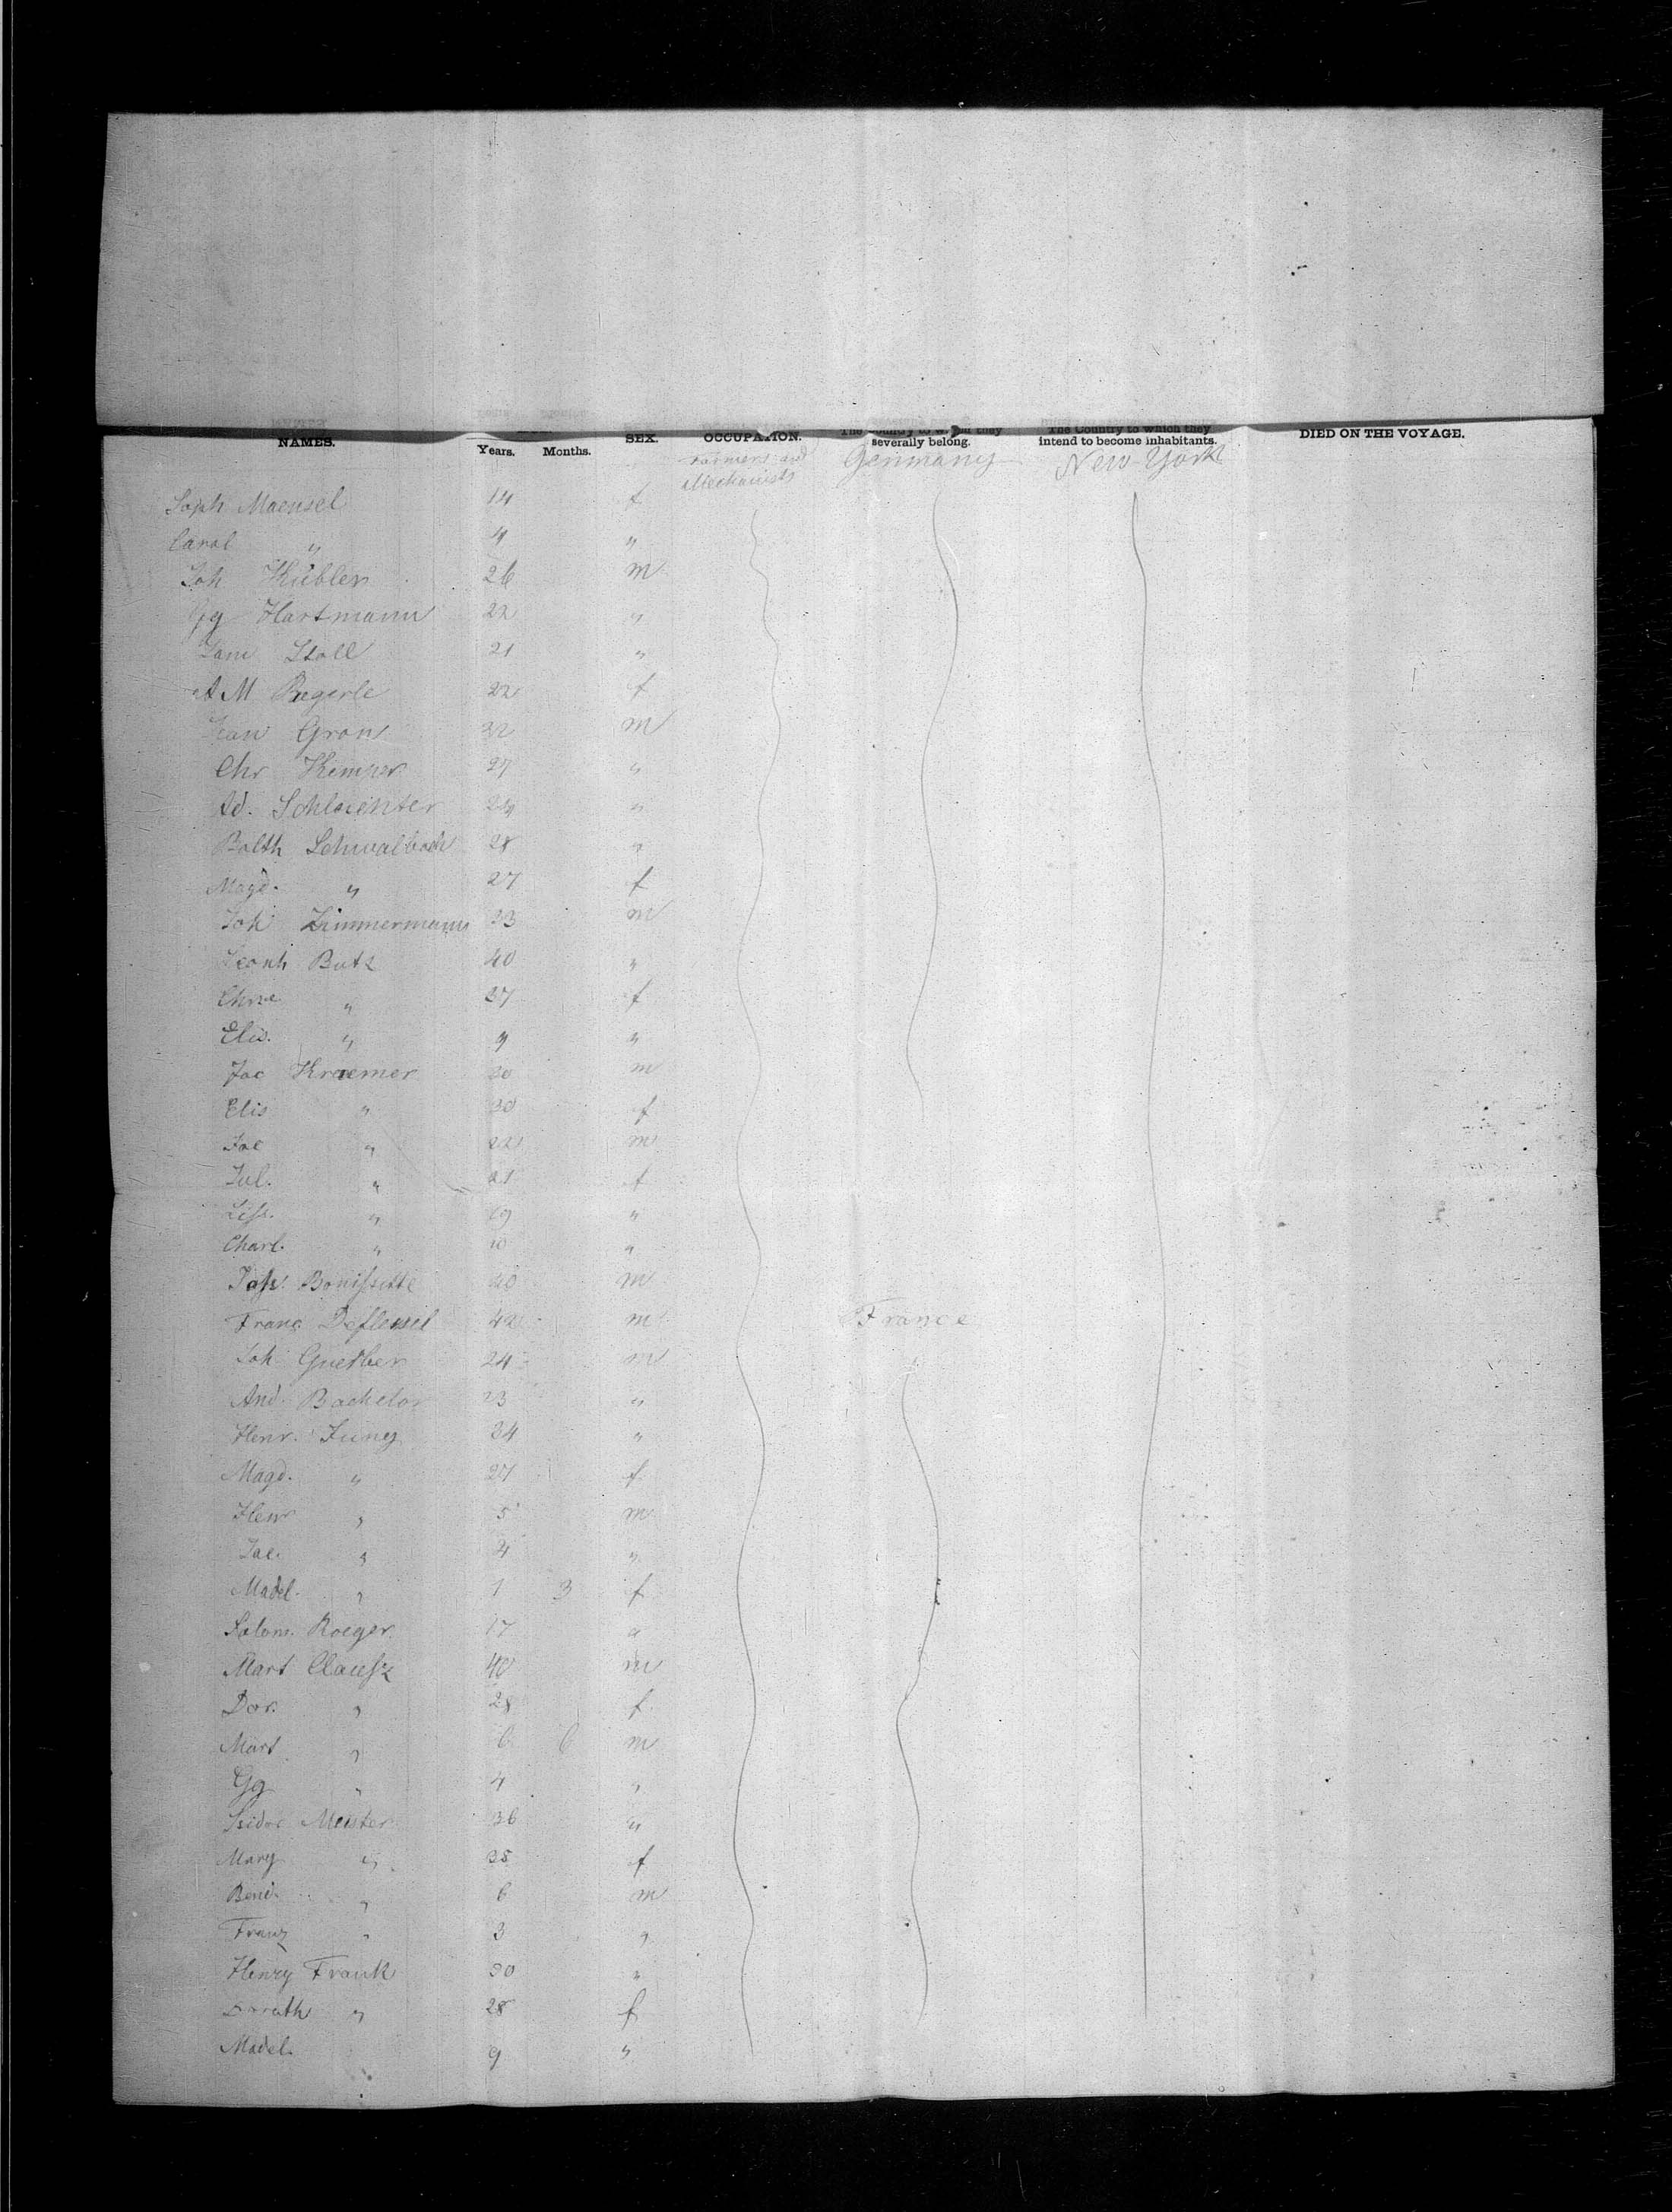 NAMES. Years. Months. SEX. OCCUPATION. The Country to which they severally belong. The Country to which they intend to become inhabitants. DIED ON THE VOYAGE.
Farmers and Mechanists Germany New York
Soph Maensel 14 f
Carol " 4 "
Joh Kübler 26 m
Gg Hartmann 22 "
Stoll 21 "
A M 22 f
Jean Gron 32 m
Chr Kemper 27 "
Ad. Schlaichter 24 "
Balth Schwalbach 28 "
Magd. " 27 f
Joh Zimmermann 33 m
Leonh Butz 40 "
Chrne " 37 f
Elis. " 9 "
Jac Kraemer 30 m
Elis " 30 f
Jac " 22 m
Jul. " 21 f
" 19 "
Charl. " 10 "
Jos. 40 m
Franc 42 m France
Joh Guerber 24 m
And. Bachelor 23 "
Henr. Jung 34 "
Magd. " 27 f
Henr " 5 m
Jac. " 4 "
Madel. " 1 3 f
Salom. Roeger 17 "
Mart Clausz 40 m
Dor. " 28 f
Mart " 6 6 m
Gg " 4 "
Isidor Meister 36 "
Mary " 35 f
Bend. " 6 m
Franz " 3 "
Henry Frank 30 "
" 28 f
Madel. 9 "